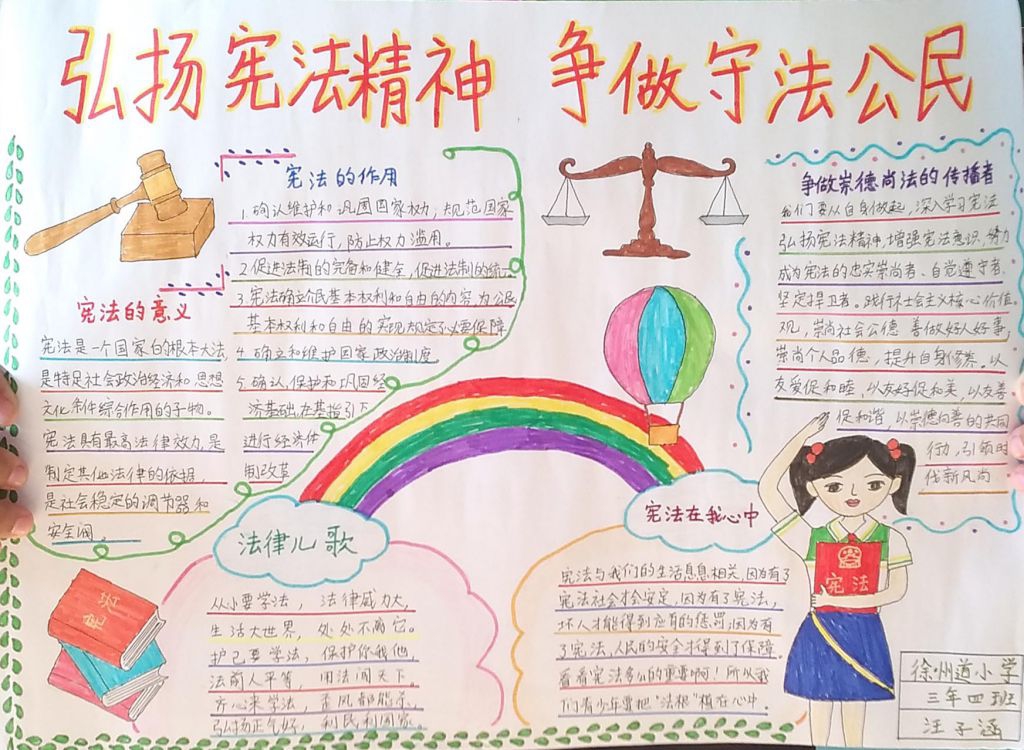 弘扬宪法精神 争做守法公民
宪法的作用
1. 确认维护和巩固国家权力，规范国家
权力有效运行，防止权力滥用。
2. 促进法制的完备和健全，促进法制的统一
3. 宪法确立公民基本权利和自由的内容，为公民
基本权利和自由的实现规定了必要保障
4. 确立和维护国家政治制度
5. 确认，保护和巩固经
济基础，在基指引下
进行经济体
制改革
宪法的意义
宪法是一个国家的根本大法，
是特定社会政治经济和思想
文化条件综合作用的子物。
宪法具有最高法律效力，是
制定其他法律的依据，
是社会稳定的调节器和
安全阀。
争做崇德尚法的传播者
我们要从自身做起，深入学习宪法
弘扬宪法精神，增强宪法意识，努力
成为宪法的忠实崇尚者、自觉遵守者、
坚定捍卫者。践行社会主义核心价值
观，崇尚社会公德 善做好人好事，
崇尚个人品德，提升自身修养。以
友爱促和睦，以友好促和美，以友善
促和谐，以崇德向善的共同
行动，引领时
代新风尚
法律儿歌
从小要学法，法律威力大，
生活大世界，处处不离它。
护己要学法，保护你我他，
法前人平等，用法闯天下。
齐心来学法，歪风都能杀，
弘扬正气好，利民利国家。
宪法在我心中
宪法与我们的生活息息相关，因为有了
宪法社会才会安定，因为有了宪法，
坏人才能得到应有的惩罚，因为有
了宪法，人民的安全才得到了保障。
看看宪法多么的重要啊！所以我
们青少年要把“法根”植在心中。
宪法
宪法
徐州道小学
三年四班
汪子涵